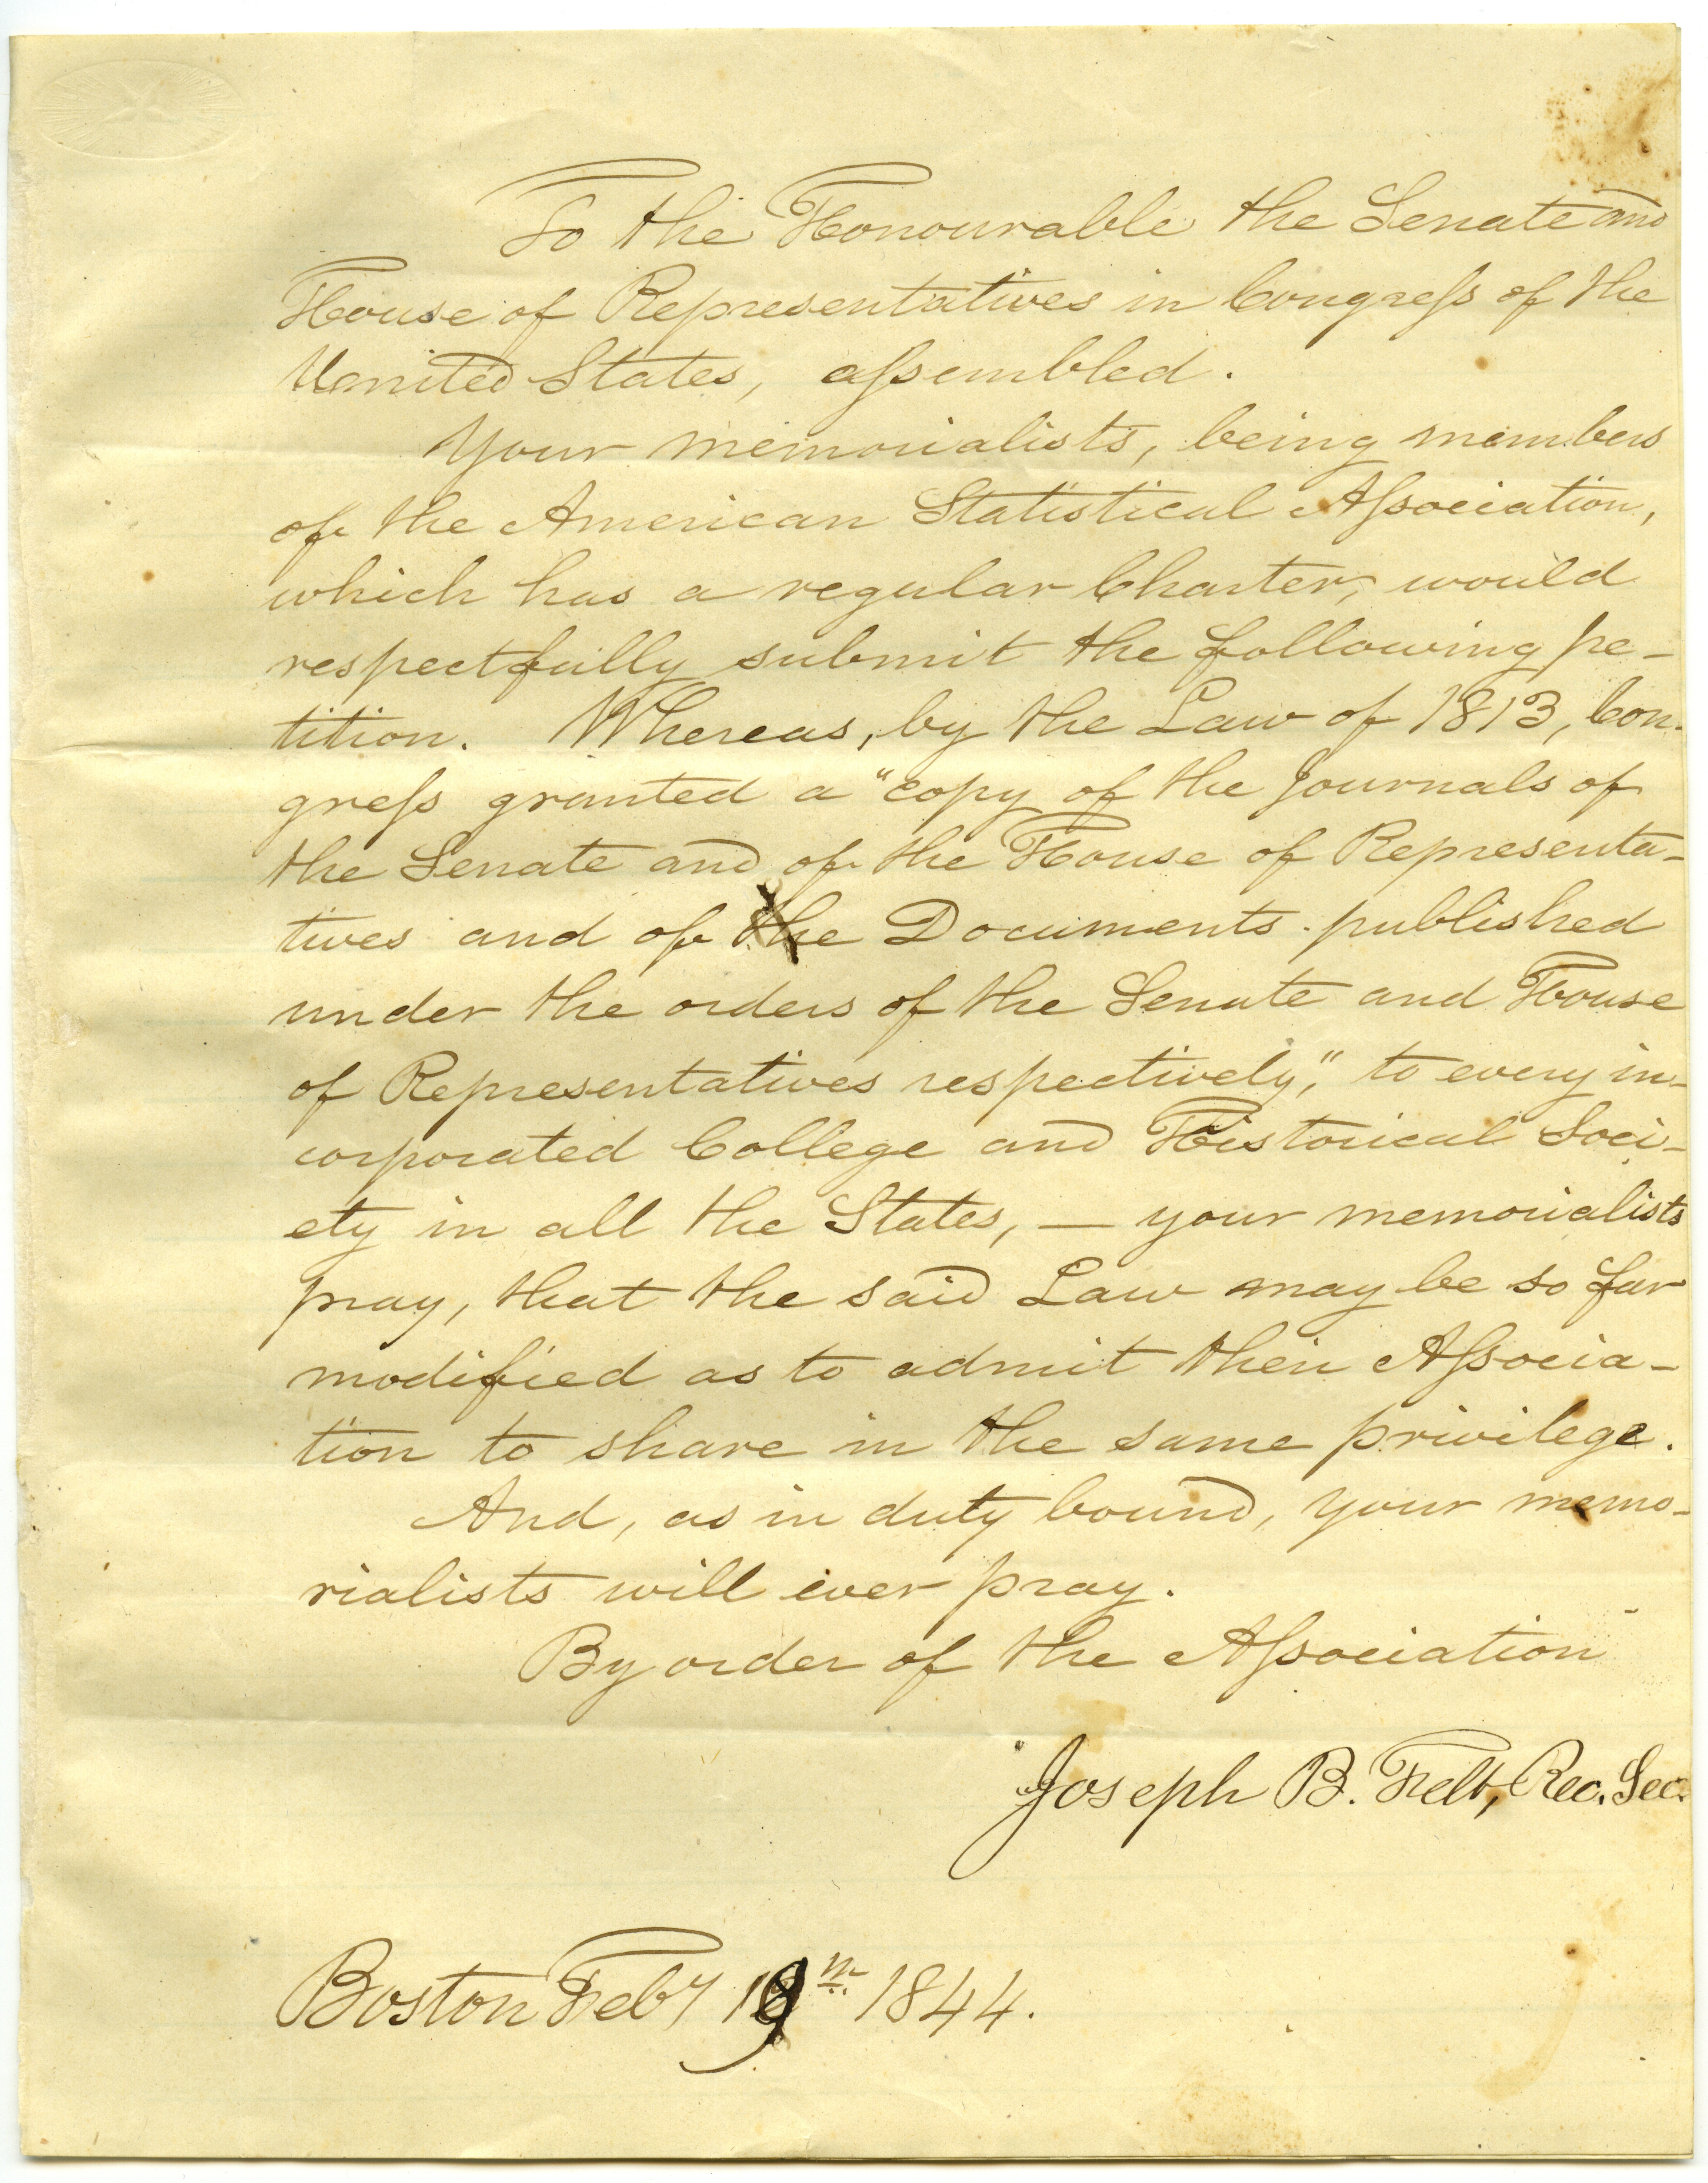 To the Honourable the Senate and
House of Representatives in Congreſs of the
United States, aſsembled.
Your memorialists, being members
of the American Statistical Aſsociation,
which has a regular Charter, would
respectfully submit the following pe-
tition. Whereas, by the Law of 1813, Con-
greſs granted a "copy of the Journals of
the Senate and of the House of Representa-
tives and of the Documents published
under the orders of the Senate and House
of Representatives respectively," to every in-
corporated College and Historical Soci-
ety in all the States, — your memorialists
pray, that the said Law may be so far
modified as to admit their Aſsocia-
tion to share in the same privilege.
And, as in duty bound, your memo-
rialists will ever pray.
By order of the Aſsociation
Joseph B. Felt, Rec. Sec.
Boston Feby 19th 1844.